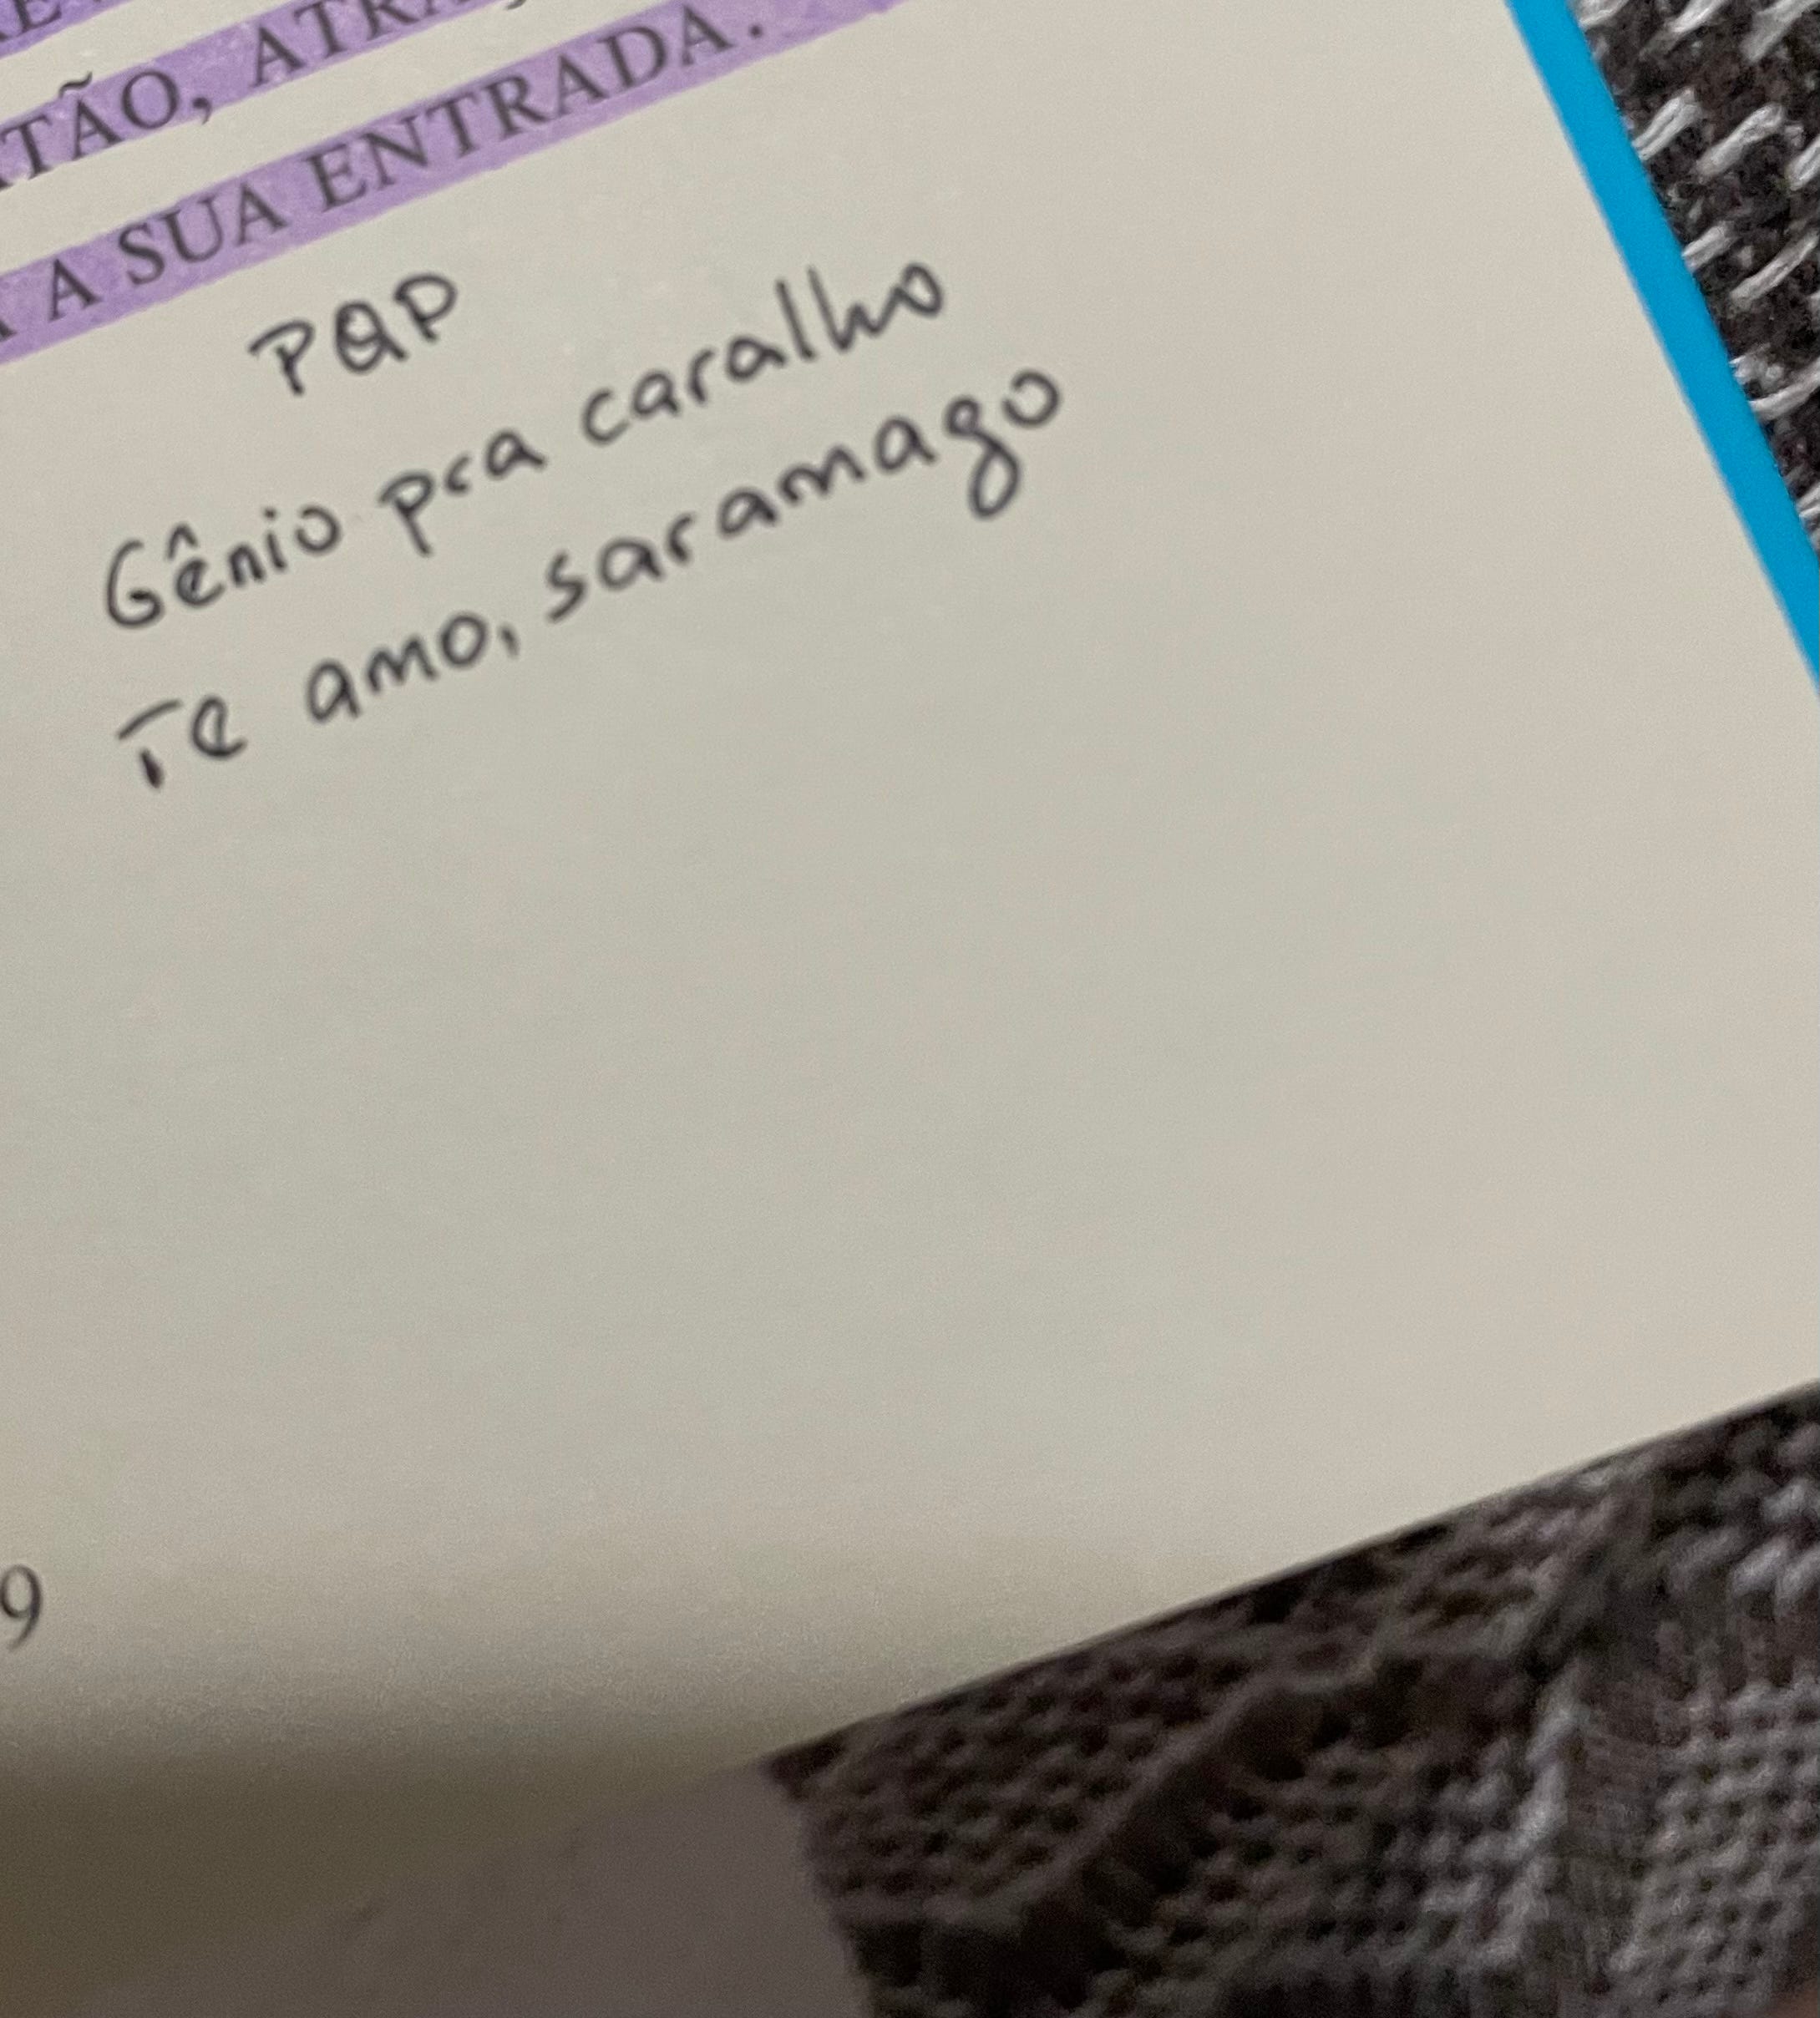 TÃO,
A SUA ENTRADA.
PQP
Gênio pra caralho
Te amo, saramago
9